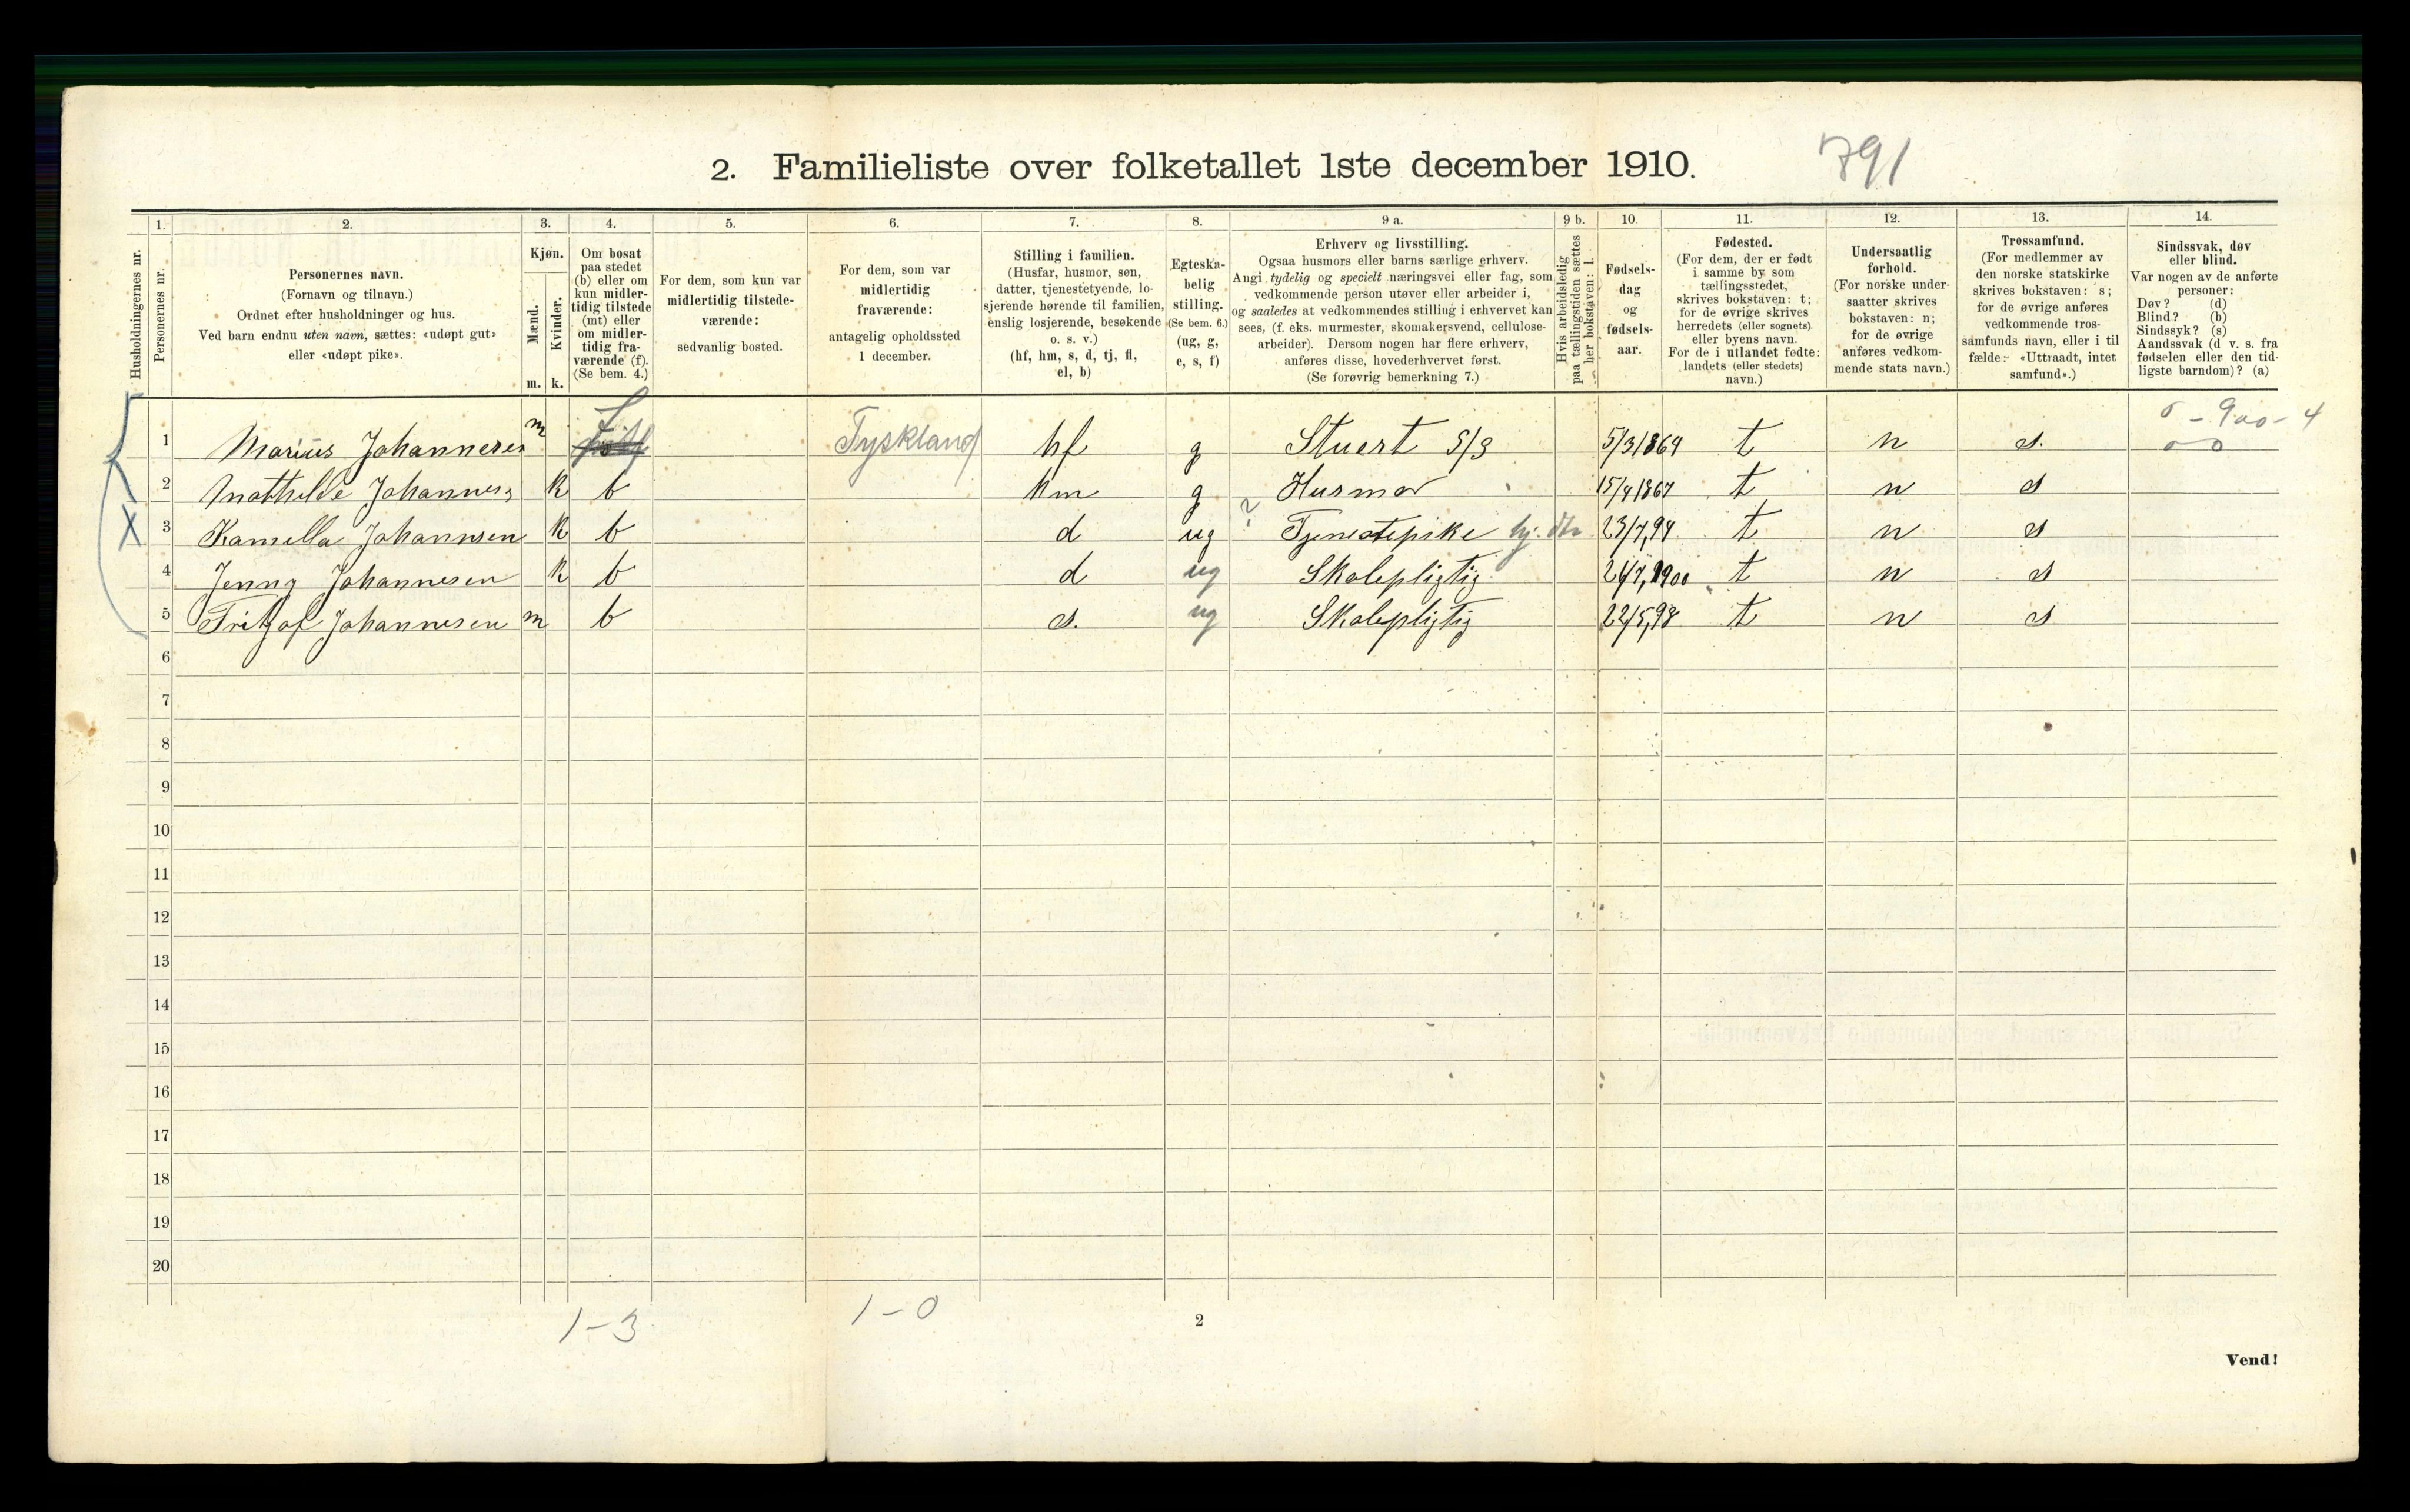 2. Familieliste over folketallet 1ste december 1910.
791
1. 2. 3. 4. 5. 6. 7. 8. 9 a. 9 b. 10. 11. 12. 13. 14.
Husholdningernes nr.
Personernes nr.
Personernes navn.
(Fornavn og tilnavn.)
Ordnet efter husholdninger og hus.
Ved barn endnu uten navn, sættes: «udøpt gut»
eller «udøpt pike».
Kjøn.
Mænd.
Kvinder.
m. k.
Om bosat
paa stedet
(b) eller om
kun midler-
tidig tilstede
(mt) eller
om midler-
tidig fra-
værende (f).
(Se bem. 4.)
For dem, som kun var
midlertidig tilstede-
værende:
sedvanlig bosted.
For dem, som var
midlertidig
fraværende:
antagelig opholdssted
1 december.
Stilling i familien.
(Husfar, husmor, søn,
datter, tjenestetyende, lo-
sjerende hørende til familien,
enslig losjerende, besøkende
o. s. v.)
(hf, hm, s, d, tj, fl,
el, b)
Egteska-
belig
stilling.
(Se bem. 6.)
(ug, g,
e, s, f)
Erhverv og livsstilling.
Ogsaa husmors eller barns særlige erhverv.
Angi tydelig og specielt næringsvei eller fag, som
vedkommende person utøver eller arbeider i,
og saaledes at vedkommendes stilling i erhvervet kan
sees, (f. eks. murmester, skomakersvend, cellulose-
arbeider). Dersom nogen har flere erhverv,
anføres disse, hovederhvervet først.
(Se forøvrig bemerkning 7.)
Hvis arbeidsledig
paa tællingstiden sættes
her bokstaven: l.
Fødsels-
dag
og
fødsels-
aar.
Fødested.
(For dem, der er født
i samme by som
tællingsstedet,
skrives bokstaven: t;
for de øvrige skrives
herredets (eller sognets)
eller byens navn.
For de i utlandet fødte:
landets (eller stedets)
navn.)
Undersaatlig
forhold.
(For norske under-
saatter skrives
bokstaven: n;
for de øvrige
anføres vedkom-
mende stats navn.)
Trossamfund.
(For medlemmer av
den norske statskirke
skrives bokstaven: s;
for de øvrige anføres
vedkommende tros-
samfunds navn, eller i til
fælde: «Uttraadt, intet
samfund».)
Sindssvak, døv
eller blind.
Var nogen av de anførte
personer:
Døv? (d)
Blind? (b)
Sindssyk? (s)
Aandssvak (d v. s. fra
fødselen eller den tid-
ligste barndom)? (a)
1 Marius Johannesen m f Tyskland hf g Stuert S/S 5/3 1869 t n s.
2 Mathilde Johannes k b hm g Husmor 15/4 1867 t n s
X 3 Kamella Johannsen k b d ug ? Tjenestepike hj. dtr 23/7,94 t n s
4 Jenny Johannesen k b d ug Skolepligtig 1900 t n s
5 Tritjof Johannesen m b s. ug Skolepligtig 22/5,98 t n s
6
7
8
9
10
11
12
13
14
15
16
17
18
19
20
1-3
1-0
2
Vend!